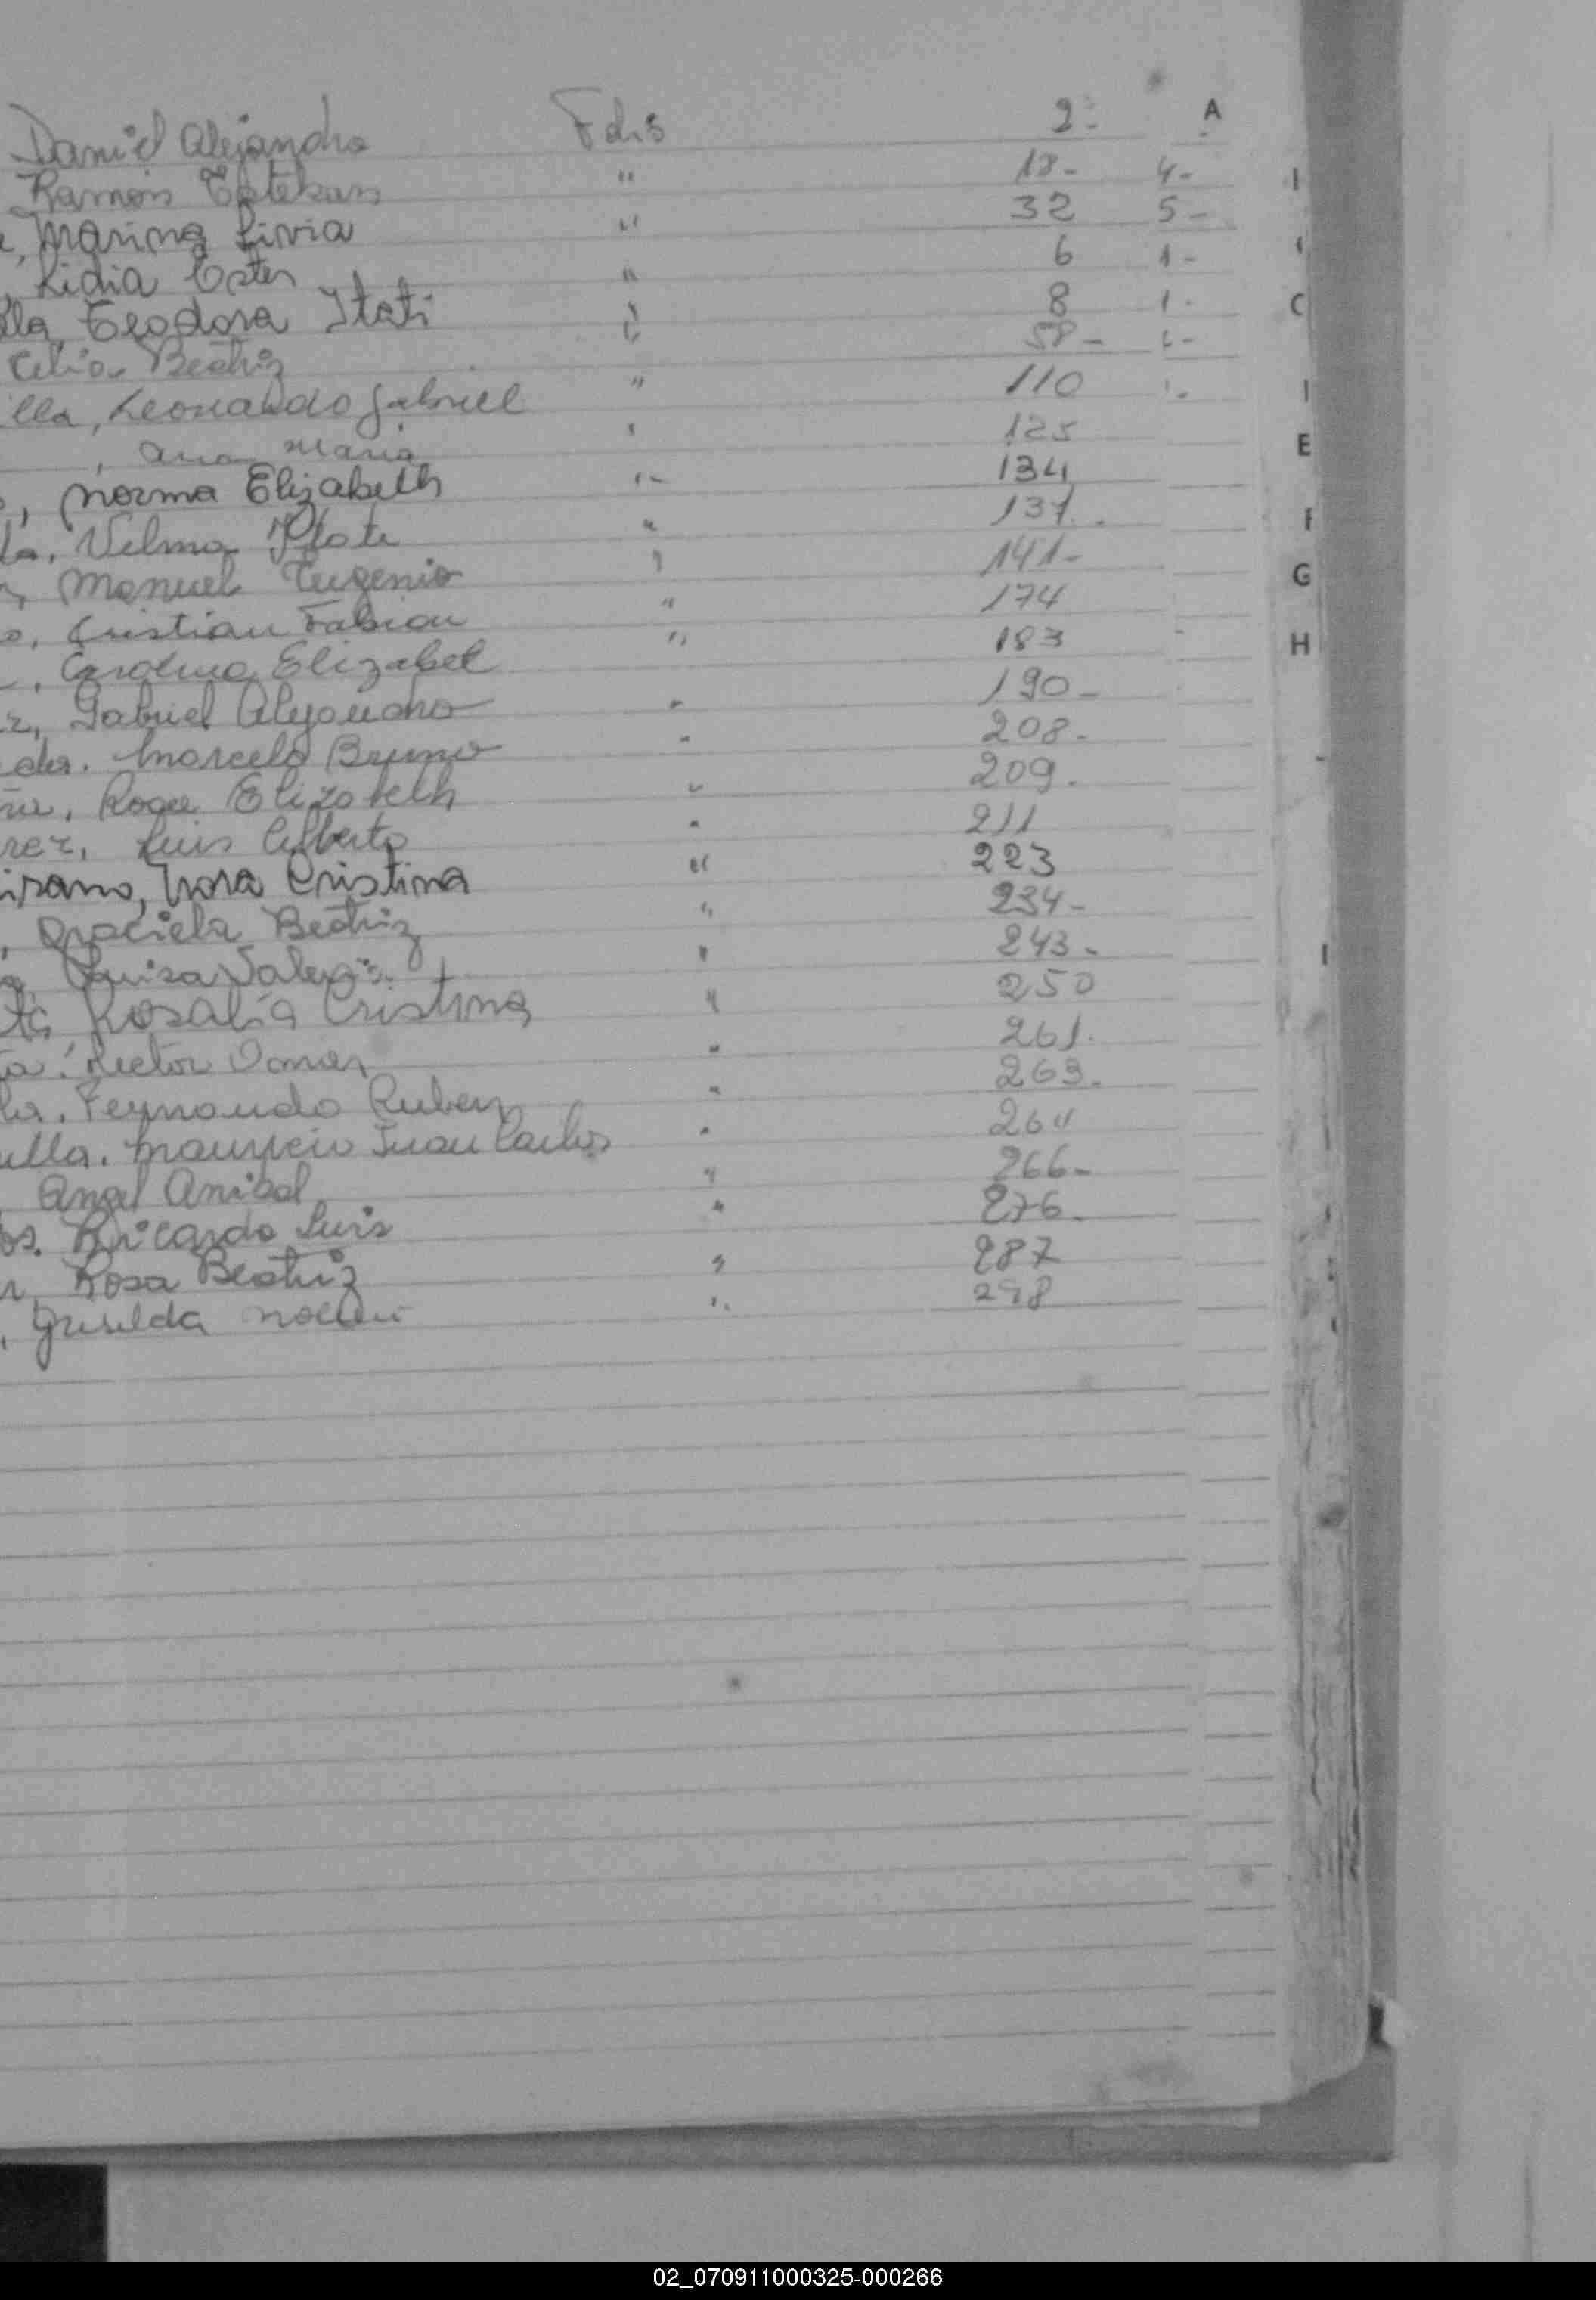 Daniel Alejandro Folio 2- A
Ramón Esteban " 18- 4-
, Marina Livia " 32 5-
, Lidia Ester " 6 1-
lla, Teodora Itati " 8 1- C
Celia Beatriz " 58-
illa, Leonardo Gabriel " 110
, Ana Maria " 125 E
, Norma Elizabeth " 134
la, Velma 137. F
, Manuel Eugenio " 141- G
o, Cristian Fabian " 174
, Carolina Elizabet " 183 H
z, Gabriel Alejandro " 190-
Marcelo Bruno " 208-
Elizabeth " 209.
rez, Luis Alberto " 211
isano, Nora Cristina " 223
, Graciela Beatriz " 234-
Luisa " 243-
Rosalía Cristina " 250
ta, Hector Omar " 261.
Fernando Ruben " 263.
ulla. Mauricio Juan Carlos "
Angel Anibal " 266-
os. Ricardo Luis " 276.
Rosa Beatriz " 287
, Griselda Noemi " 298
02_070911000325-000266